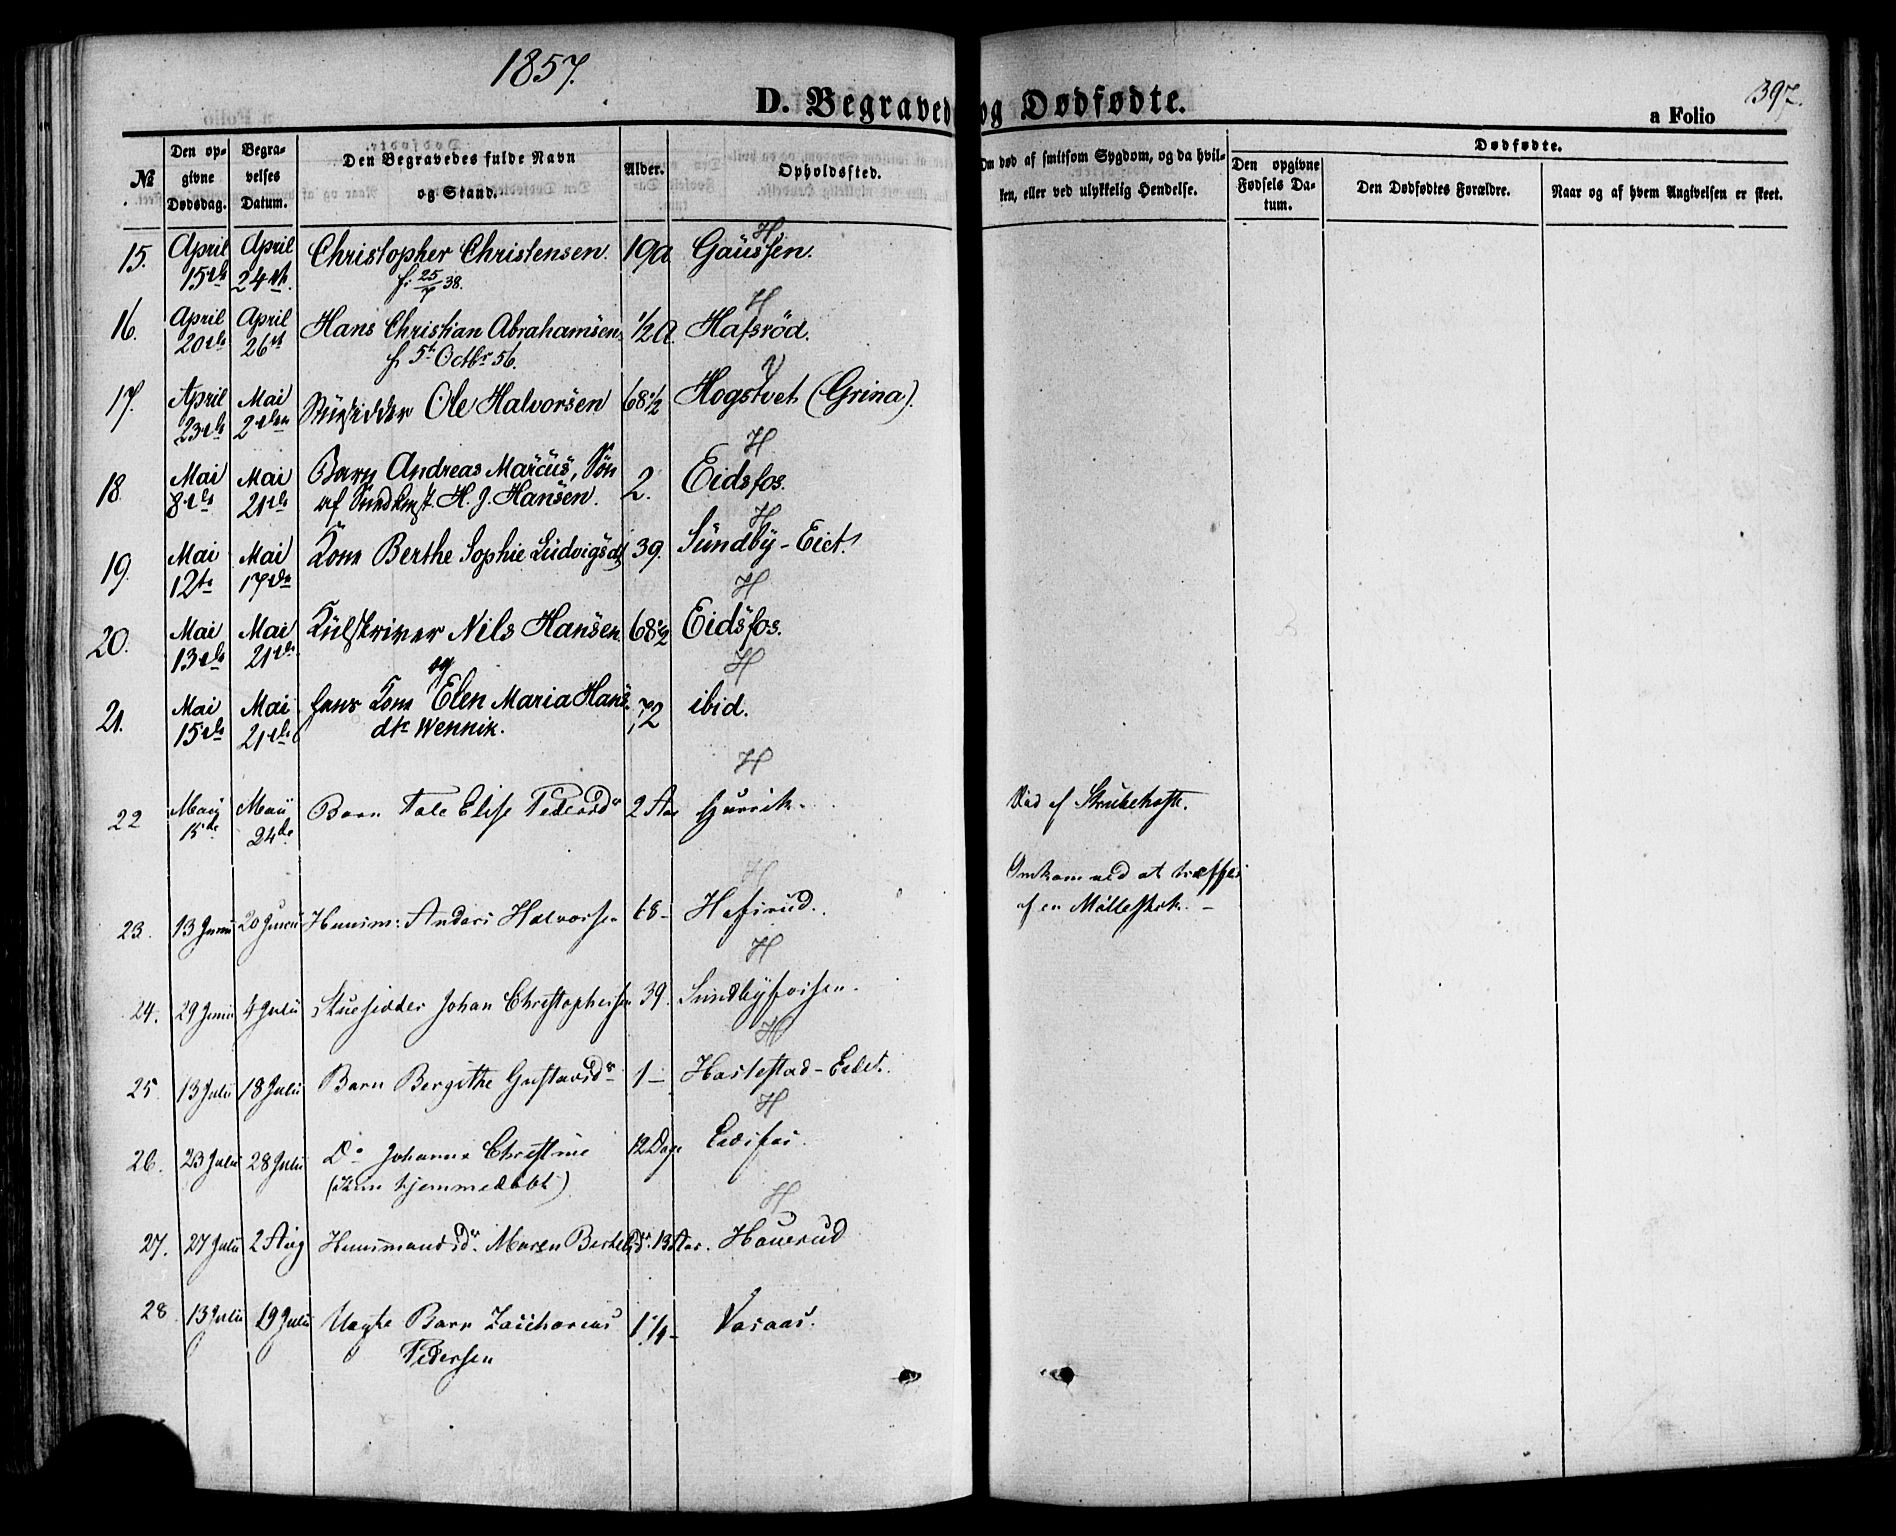 1857.
D. Begravede og Dødfødte.
a Folio 397.
№
Den opgivne Dødsdag.
Begravelses Datum.
Den Begravedes fulde Navn og Stand.
Alder.
Opholdssted.
Om død af smitsom Sygdom, og da hvilken, eller ved ulykkelig Hendelse.
Dødfødte.
Den opgivne Fødsels Datum.
Den Dødfødtes Forældre.
Naar og af hvem Angivelsen er skeet.
H
15. April 15de April 24de Christopher Christensen. 19 a Gaussen.
f. 25/7 38.
H
16. April 20de April 26de Hans Christian Abrahamsen 1/2 a. Hafsröd.
f. 5t Octbr 56.
V
17. April 23de Mai 2den Ole Halvorsen 68 1/2 Hogstvet (Grina).
H
18 Mai 8de Mai 21de Barn Andreas Marcus, Søn 2. Eidsfos.
af H. J. Hansen.
H
19. Mai 12te Mai 17de Kone Berthe Sophie Ludvigsdt 39. Sundby-Eiet.
H
20. Mai 13de Mai 21de Kulskriver Nils Hansen 68 1/2 Eidsfos.
og
H
21. Mai 15de Mai 21de hans Kone Elen Maria Hans 72 ibid.
dtr Wennik.
H
22 Maij 15de Maij 24de Barn Tale Elise Pedersdr 2 Aar Død af Strubehoste.
H
Omkom ved at træffes
23. 13 Junii 20 Junii Huusm: Anders Halvorsen 68 - Hafsrud. af en Møllestok. -
H
24. 29 Junii 4 Julii Stuesidder Johan Christophersen 39. Sundbyfossen.
H
25. 13 Julii 18 Julii Barn Bergithe Gustavsdr 1 - Hastestad-Eiet.
H
26. 23 Julii 28 Julii Do Johanne Christine 12 Dage Eidsfos.
(kun hjemmedøbt)
H
27. 27 Julii 2 Aug Huusmandsdr. Maren Bertelsdr. 13 Aar. Hauerud
28 13 Julii 19 Julii Uægte Barn Zacharias 1 1/4 - Vasaas.
Pedersen